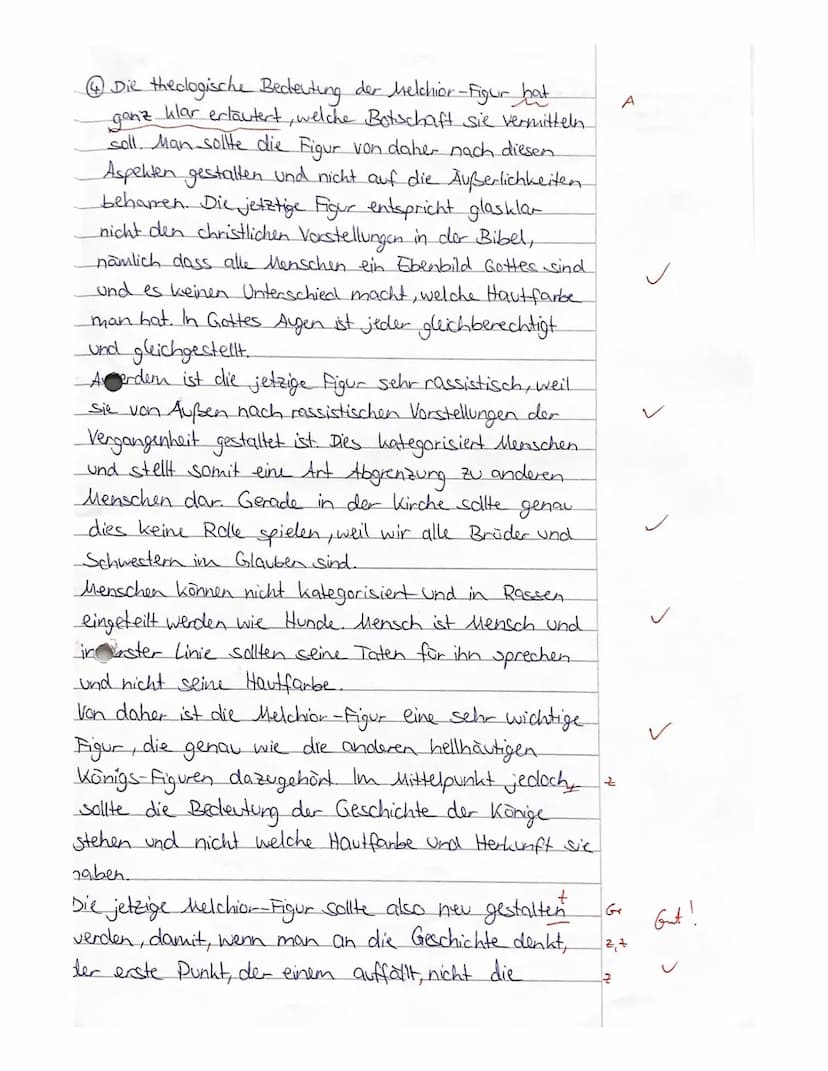 ④ Die theologische Bedeutung der Melchior-Figur hat A
ganz klar erläutert, welche Botschaft sie vermitteln
soll. Man sollte die Figur von daher nach diesen
Aspekten gestalten und nicht auf die Äußerlichkeiten
beharren. Die jetztige Figur entspricht glasklar
nicht den christlichen Vorstellungen in der Bibel,
nämlich dass alle Menschen ein Ebenbild Gottes sind ✓
und es keinen Unterschied macht, welche Hautfarbe
man hat. In Gottes Augen ist jeder gleichberechtigt
und gleichgestellt.
ist die jetzige Figur sehr rassistisch, weil
sie von Außen nach rassistischen Vorstellungen der ✓
Vergangenheit gestaltet ist. Dies kategorisiert Menschen
und stellt somit eine Art Abgrenzung zu anderen
Menschen dar. Gerade in der Kirche sollte genau
dies keine Rolle spielen, weil wir alle Brüder und ✓
Schwestern im Glauben sind.
Menschen können nicht kategorisiert und in Rassen
eingeteilt werden wie Hunde. Mensch ist Mensch und ✓
Linie sollten seine Taten für ihn sprechen
und nicht seine Hautfarbe.
Von daher ist die Melchior-Figur eine sehr wichtige ✓
Figur, die genau wie die anderen hellhäutigen
Königs-Figuren dazugehört. Im Mittelpunkt jedoch, z
sollte die Bedeutung der Geschichte der Könige
stehen und nicht welche Hautfarbe und Herkunft sie
haben.
Die jetzige Melchior-Figur sollte also neu gestalten t Gr Gut!
werden, damit, wenn man an die Geschichte denkt, z,t
der erste Punkt, der einem auffällt, nicht die z ✓